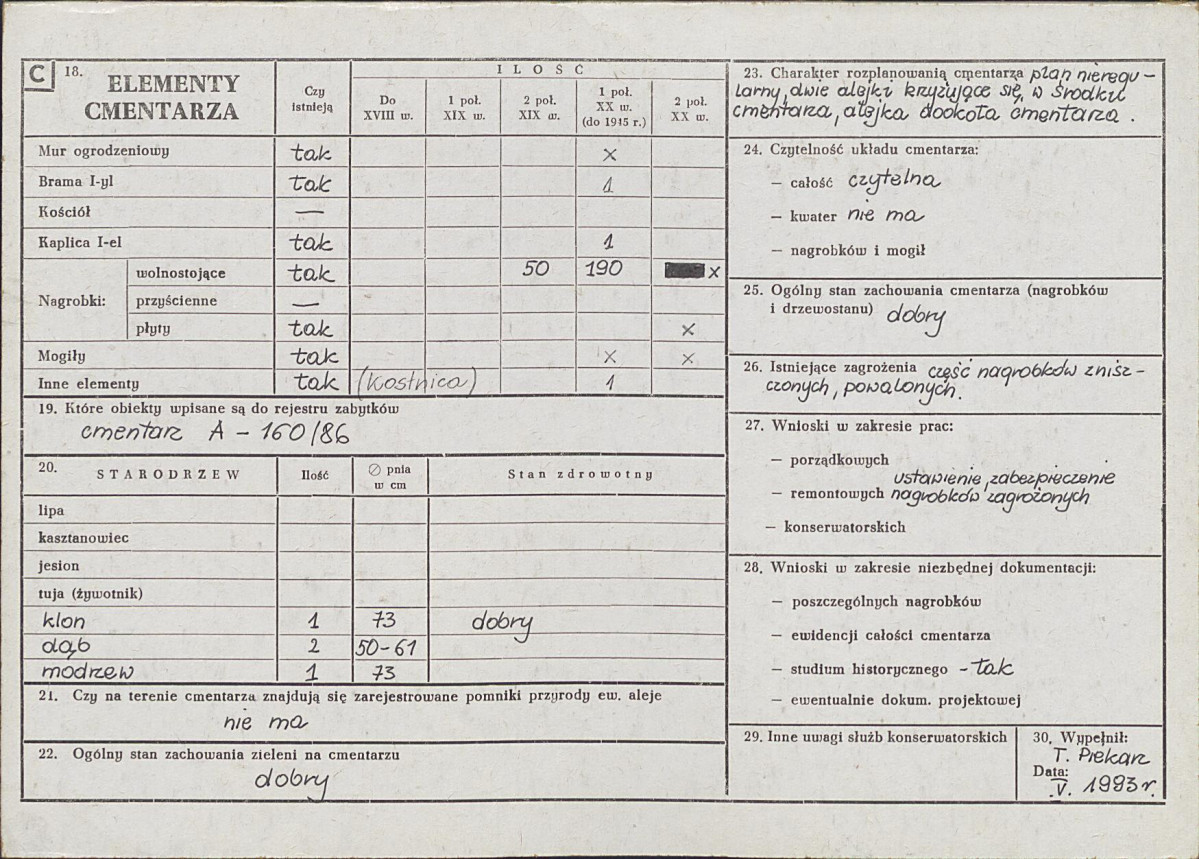 C 18. ELEMENTY
CMENTARZA
Czy
istnieją
ILOŚĆ
Do
XVIII w.
1 poł.
XIX w.
2 poł.
XIX w.
1 poł.
XX w.
(do 1945 r.)
2 poł.
XX w.
Mur ogrodzeniowy tak x
Brama I-yl tak 1
Kościół —
Kaplica I-el tak 1
Nagrobki:
wolnostojące tak 50 190 x
przyścienne —
płyty tak x
Mogiły tak x x
Inne elementy tak (kostnica) 1
19. Które obiekty wpisane są do rejestru zabytków
cmentarz A - 160/86
20. STARODRZEW Ilość ∅ pnia
w cm Stan zdrowotny
lipa
kasztanowiec
jesion
tuja (żywotnik)
klon 1 73 dobry
dąb 2 50-61
modrzew 1 73
21. Czy na terenie cmentarza znajdują się zarejestrowane pomniki przyrody ew. aleje
nie ma
22. Ogólny stan zachowania zieleni na cmentarzu
dobry
23. Charakter rozplanowania cmentarza plan nieregu-
larny, dwie alejki krzyżujące się, w środku
cmentarza, alejka dookoła cmentarza.
24. Czytelność układu cmentarza:
— całość czytelna
— kwater nie ma
— nagrobków i mogił
25. Ogólny stan zachowania cmentarza (nagrobków
i drzewostanu) dobry
26. Istniejące zagrożenia część nagrobków znisz-
czonych, powalonych.
27. Wnioski w zakresie prac:
— porządkowych
ustawienie, zabezpieczenie
— remontowych nagrobków zagrożonych
— konserwatorskich
28. Wnioski w zakresie niezbędnej dokumentacji:
— poszczególnych nagrobków
— ewidencji całości cmentarza
— studium historycznego - tak
— ewentualnie dokum. projektowej
29. Inne uwagi służb konserwatorskich
30. Wypełnił:
T. Piekarz
Data:
V. 1993 r.